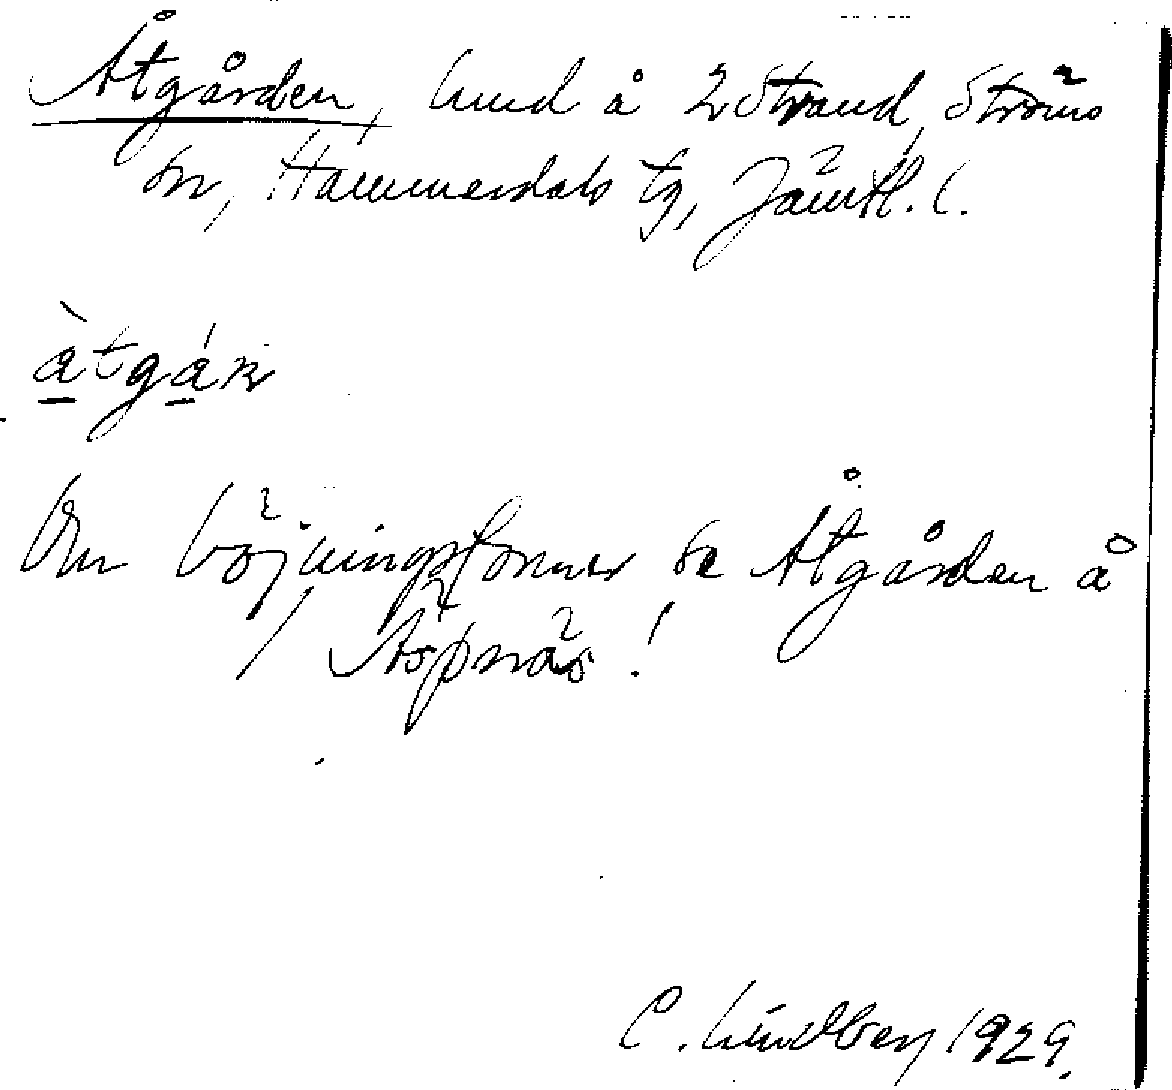 Åtgården, hmd å 2 Strand, Ströms
sn, Hammerdals tg, Jämtl. l.
àtgán
Om böjningsformer se Åtgården å
Äspnäs!
C. Lindberg 1929.